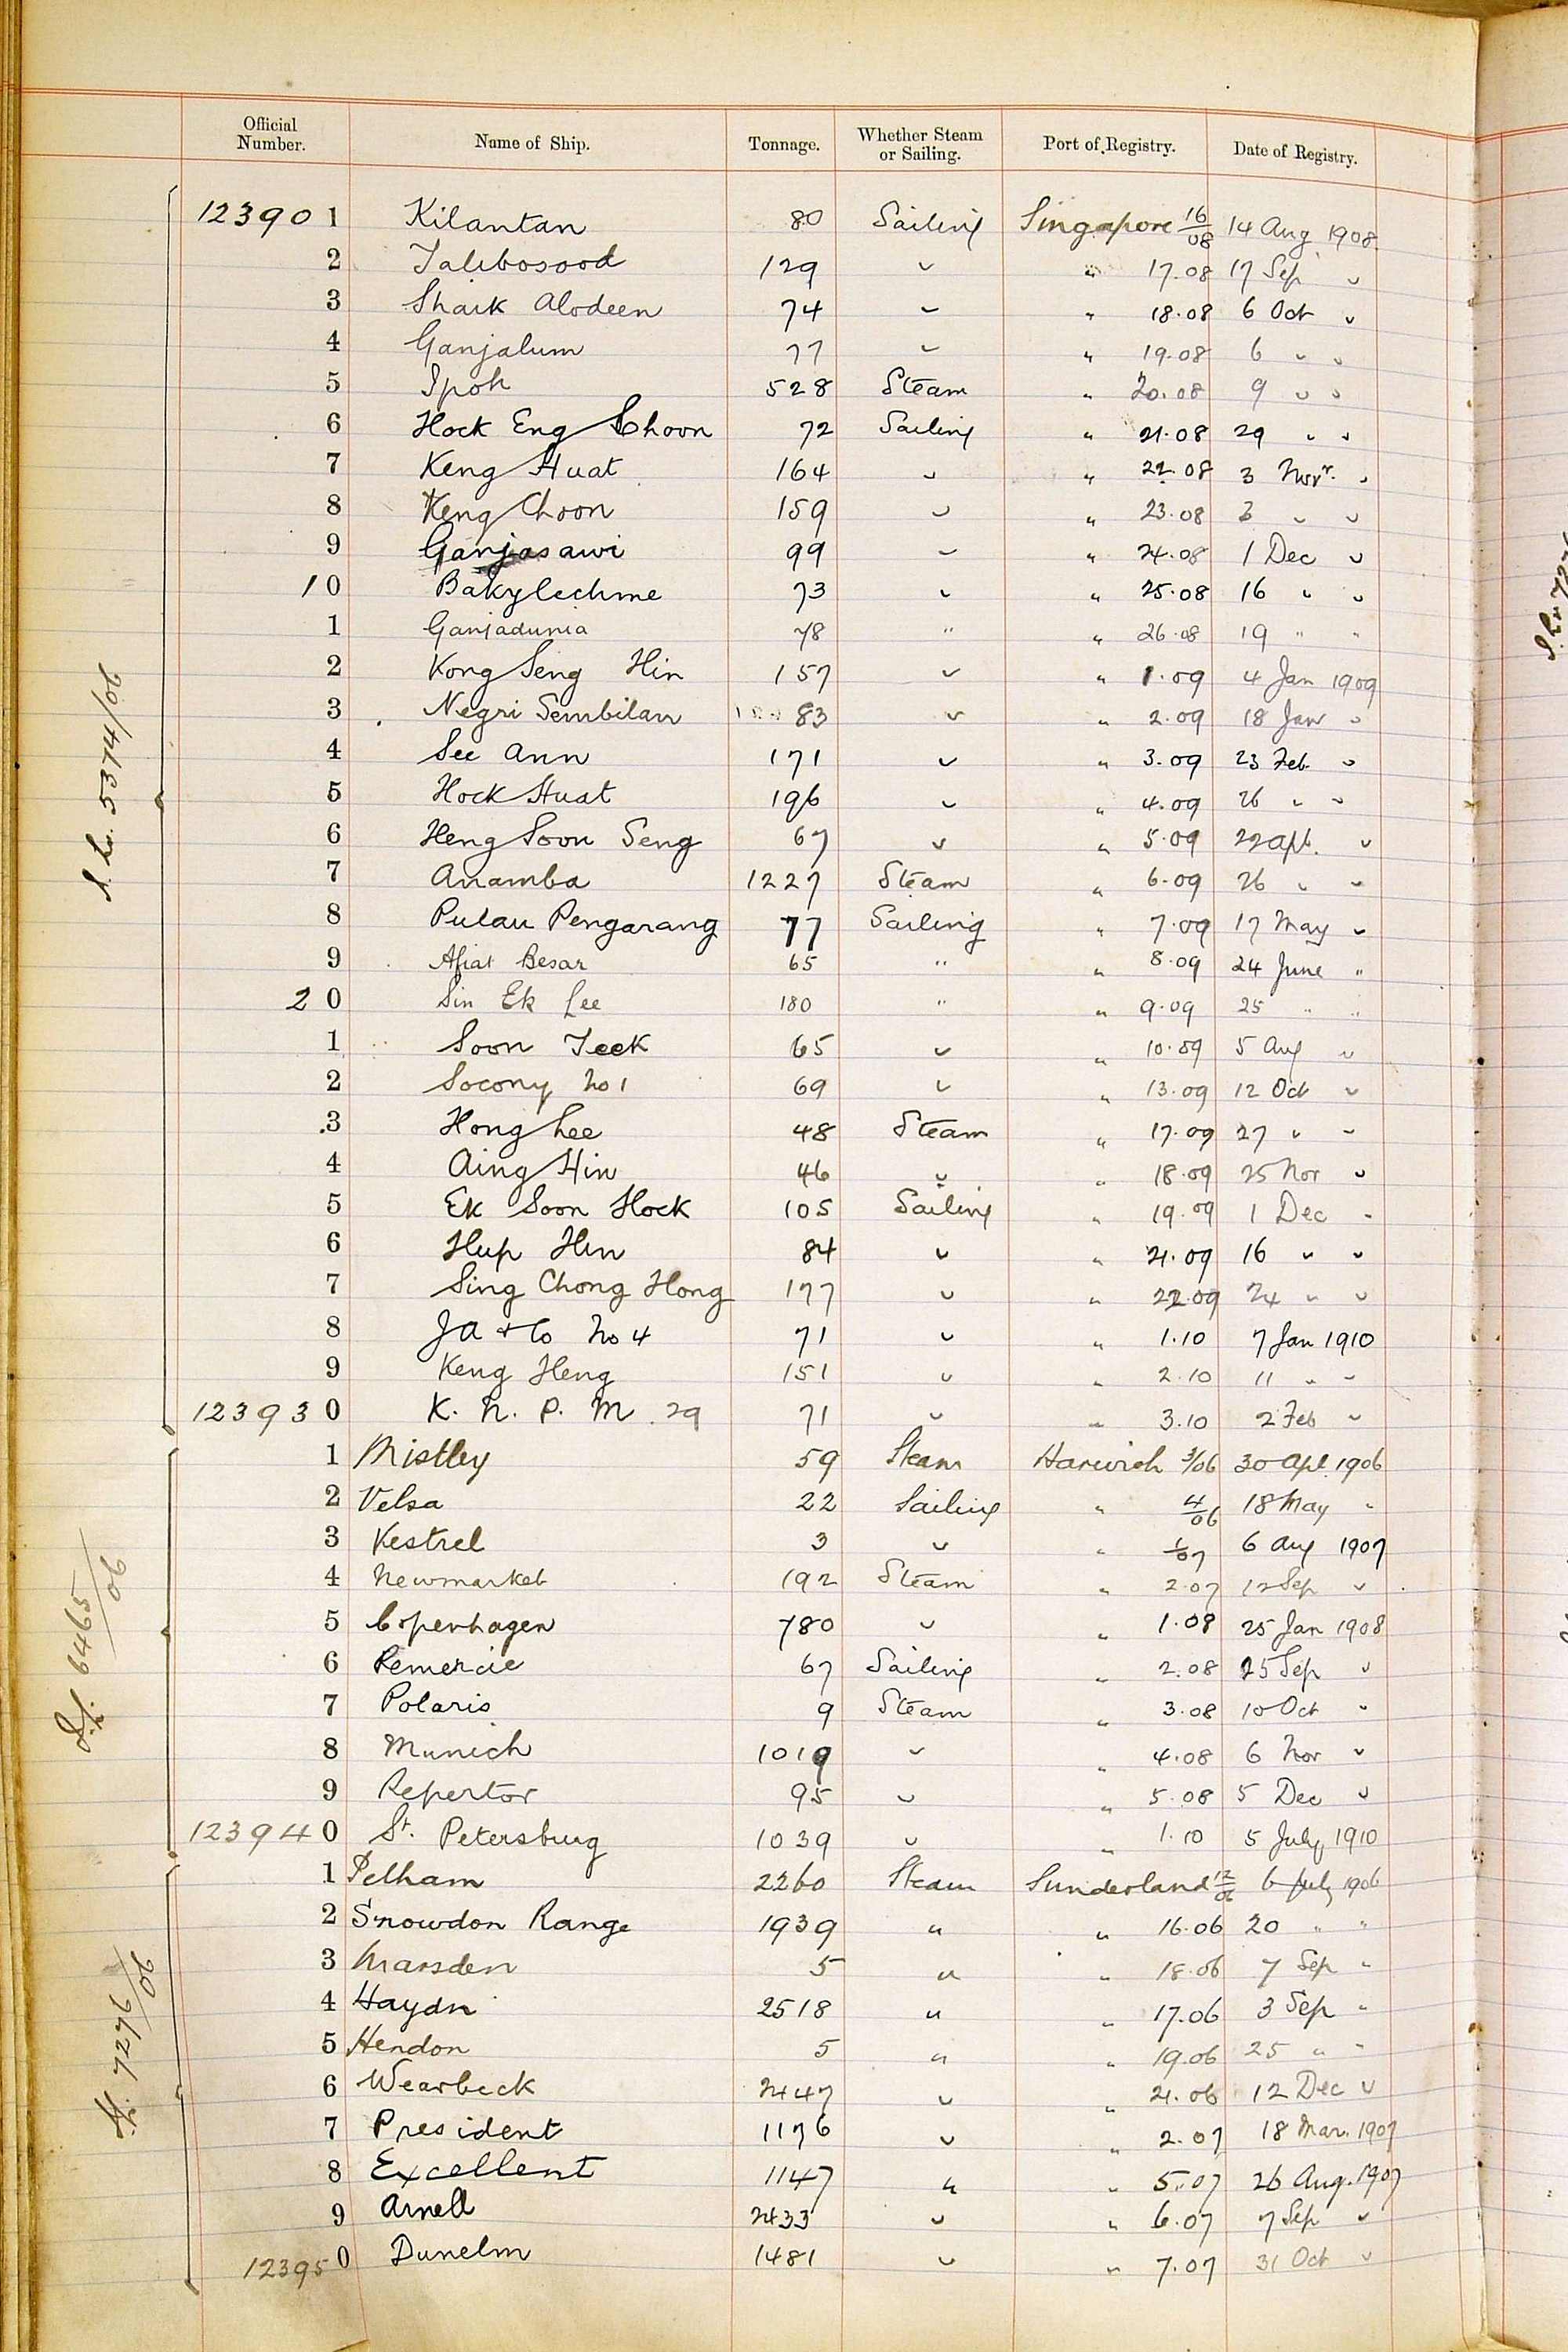 Official Number. Name of Ship. Tonnage. Whether Steam or Sailing. Port of Registry. Date of Registry.
123901 Kilantan 80 Sailing Singapore 16/08 14 Aug 1908
2 Talibosood 129 " " 17.08 17 Sep "
3 Shaik Alodeen 74 " " 18.08 6 Oct "
4 Ganjalum 77 " " 19.08 6 " "
5 Ipoh 528 Steam " 20.08 9 " "
6 Hock Eng Choon 72 Sailing " 21.08 29 " "
7 Keng Huat 164 " " 22.08 3 Novr. "
8 Keng Choon 159 " " 23.08 3 " "
9 Ganjasawi 99 " " 24.08 1 Dec "
10 Bakylechme 73 " " 25.08 16 " "
1 Ganjadunia 78 " " 26.08 19 " "
2 Kong Seng Hin 157 " " 1.09 4 Jan 1909
3 Negri Sembilan 83 " " 2.09 18 Jan "
4 See Ann 171 " " 3.09 23 Feb. "
5 Hock Huat 196 " " 4.09 26 " "
6 Heng Soon Seng 67 " " 5.09 22 Apl. "
7 Anamba 1227 Steam " 6.09 26 " "
8 Pulau Pengarang 77 Sailing " 7.09 17 May "
9 Afiat Besar 65 " " 8.09 24 June "
20 Sin Ek Lee 180 " " 9.09 25 " "
1 Soon Teek 65 " " 10.09 5 Aug "
2 Socony No 1 69 " " 13.09 12 Oct "
3 Hong Lee 48 Steam " 17.09 27 " "
4 Aing Hin 46 " " 18.09 25 Nov "
5 Ek Soon Hock 105 Sailing " 19.09 1 Dec "
6 Hup Hin 84 " " 21.09 16 " "
7 Sing Chong Hong 177 " " 22.09 24 " "
8 JA & Co No 4 71 " " 1.10 7 Jan 1910
9 Keng Heng 151 " " 2.10 11 " "
123930 K. N. P. M. 29 71 " " 3.10 2 Feb "
5374/06
1 Mistley 59 Steam Harwich 3/06 30 Apl. 1906
2 Velsa 22 Sailing " 4/06 18 May "
3 Kestrel 3 " " 1/07 6 Aug 1907
4 Newmarket 192 Steam " 2.07 12 Sep "
5 Copenhagen 780 " " 1.08 25 Jan 1908
6 Remercie 67 Sailing " 2.08 25 Sep "
7 Polaris 9 Steam " 3.08 10 Oct "
8 Munich 1019 " " 4.08 6 Nov "
9 Repertor 95 " " 5.08 5 Dec "
123940 St. Petersburg 1039 " " 1.10 5 July 1910
6465/06
1 Pelham 2260 Steam Sunderland 12/06 6 July 1906
2 Snowdon Range 1939 " " 16.06 20 " "
3 Marsden 5 " " 18.06 7 Sep "
4 Haydn 2518 " " 17.06 3 Sep "
5 Hendon 5 " " 19.06 25 " "
6 Wearbeck 2447 " " 21.06 12 Dec "
7 President 1176 " " 2.07 18 Mar. 1907
8 Excellent 1147 " " 5.07 26 Aug. 1907
9 Arnell 2433 " " 6.07 7 Sep "
123950 Dunelm 1481 " " 7.07 31 Oct "
7276/06